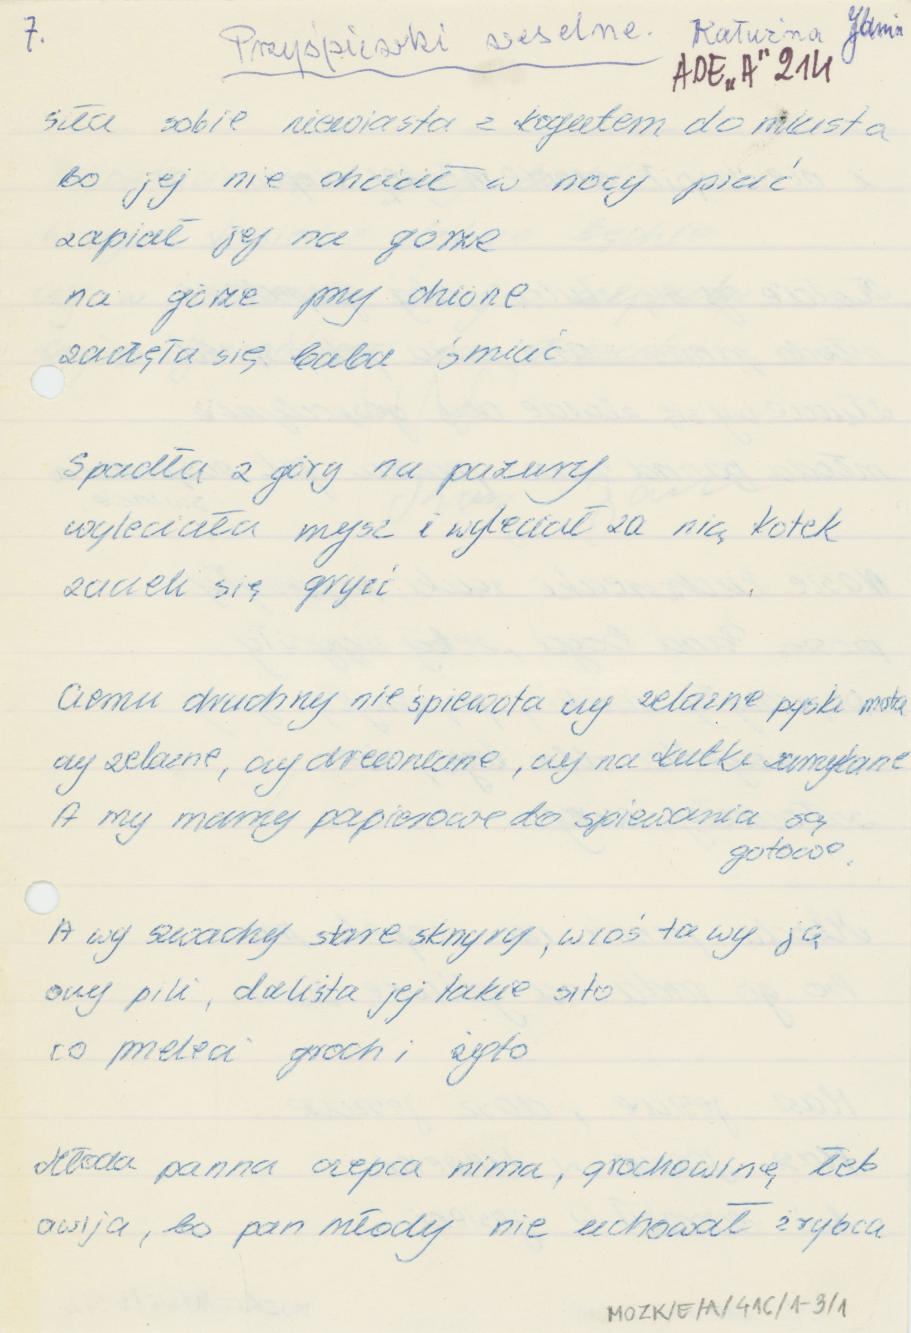 7.
Przyśpiewki weselne. Kałużna Janin
ADE„A" 214
szła sobie niewiasta z kogutem do miasta
bo jej nie chciał w nocy piać
zapiał jej na górze
na górze przy dziurze
zaczęła się baba śmiać
Spadła z góry na pazury
wyleciała mysz i wyleciał za nią kotek
zaczeli się gryźć
Czemu druchny nie śpiewota czy zelazne pyski mota
czy zelazne, czy drewniane, czy na kutki zamykane
A my mamy papierowe do spiewania są
gotowe.
A wy swachy stare sknyry, cioś ta wy ją
czy pili, daliśta jej takie sito
co przeleci groch i żyto
Młoda panna czepca nima, grochowiną łeb
owija, bo pan młody nie uchował źrybca
MOZK/E/A/416/1-3/1